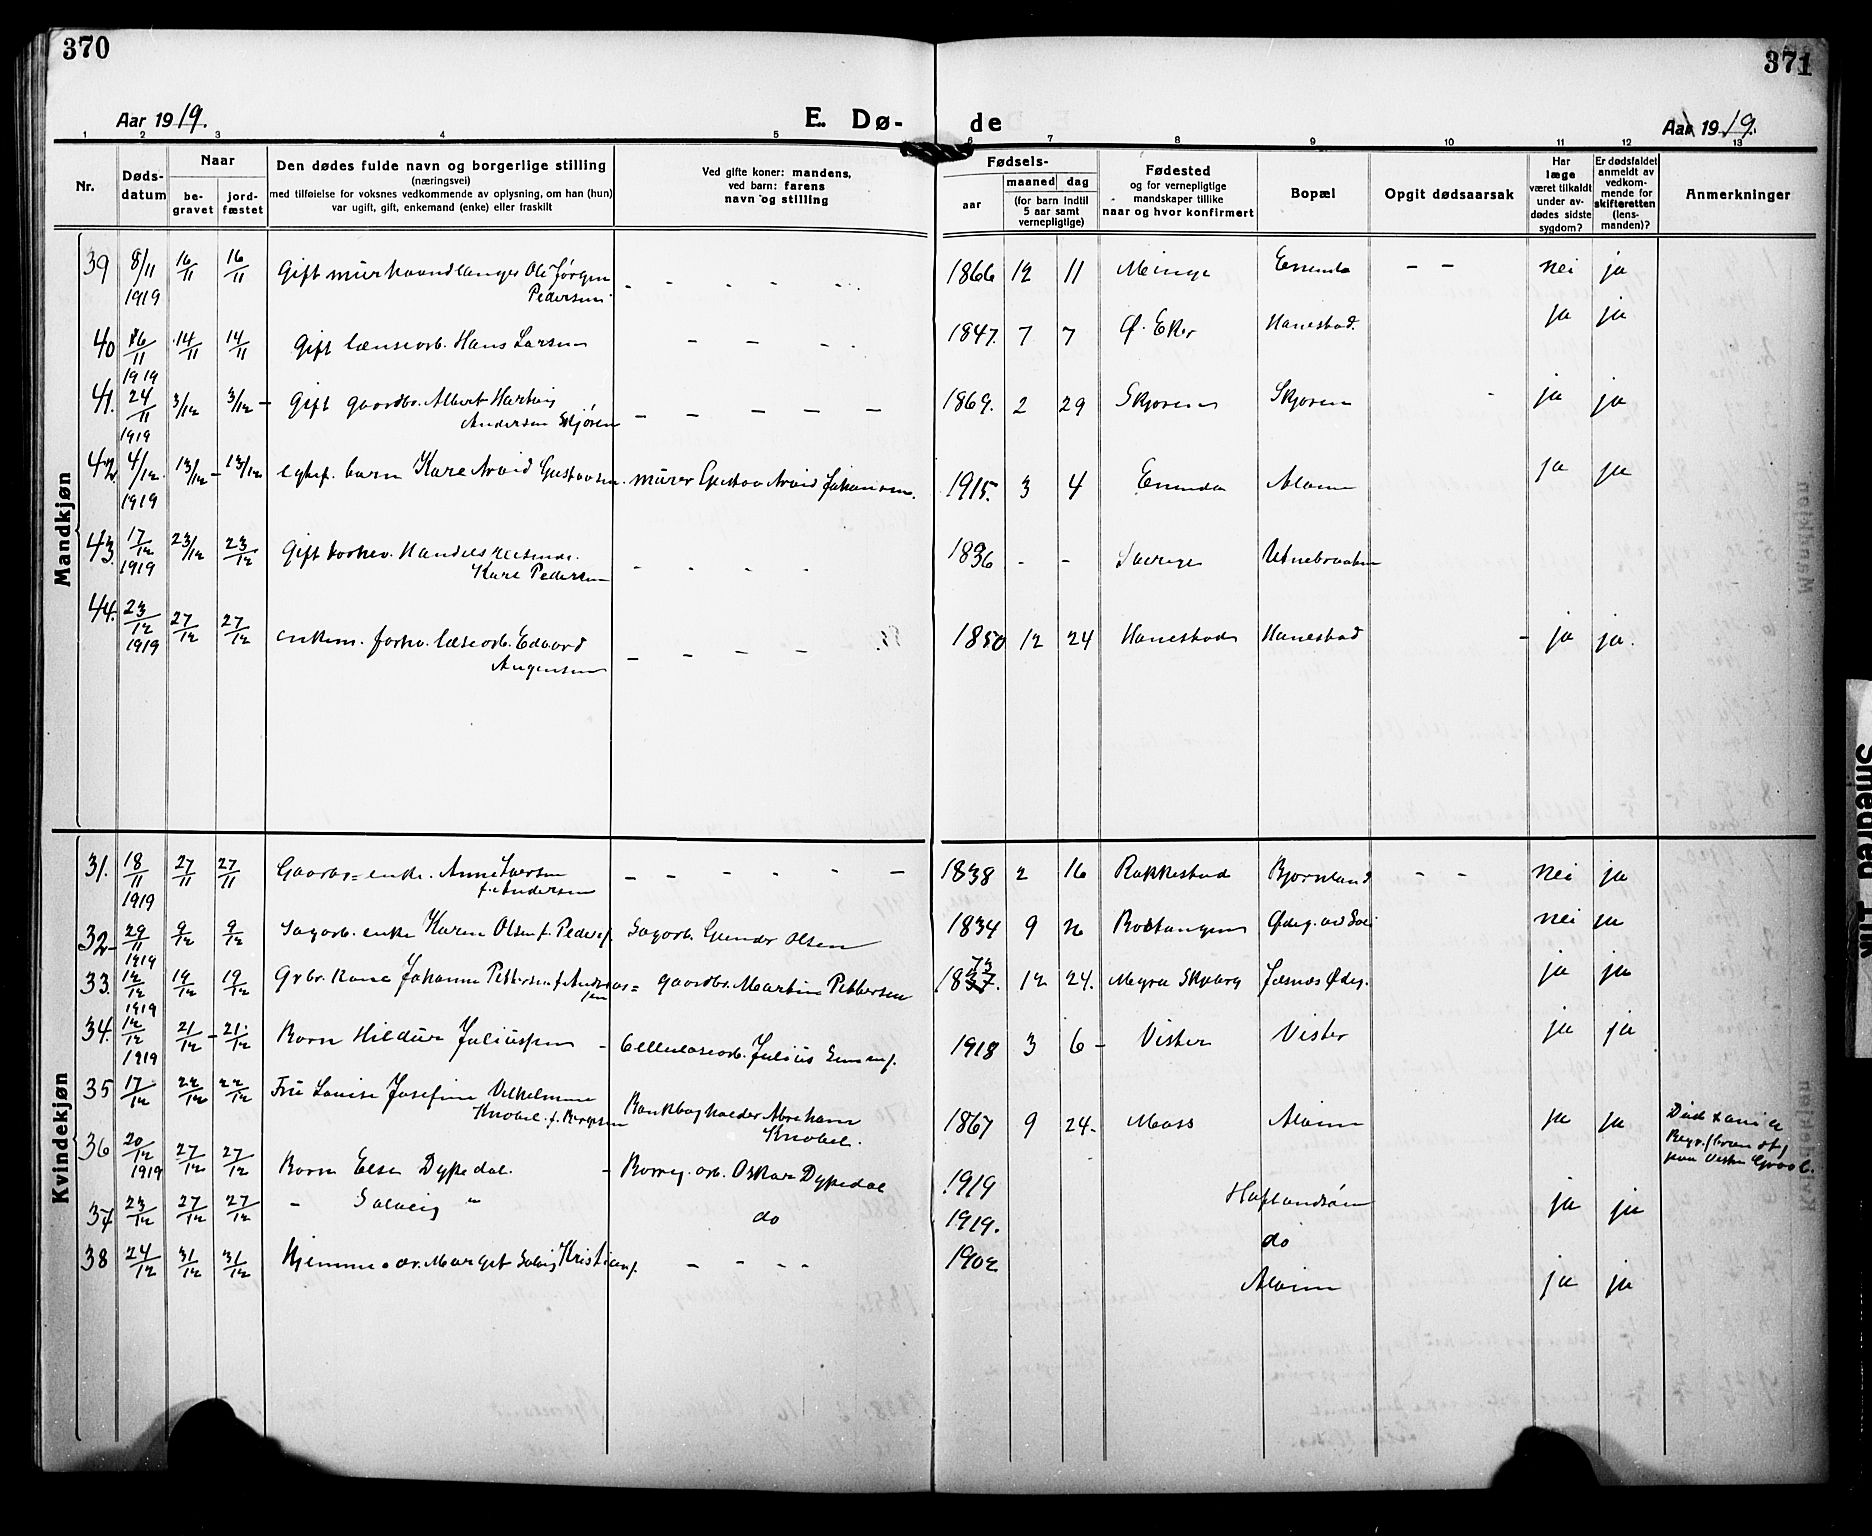 370
371
Aar 1919.
E. Dø-
de
Aar 1919.
1 2 3 4 5 6 7 8 9 10 11 12 13
Nr.
Døds-
datum
Naar
be-
gravet
jord-
fæstet
Den dødes fulde navn og borgerlige stilling
(næringsvei)
med tilføielse for voksnes vedkommende av oplysning, om han (hun)
var ugift, gift, enkemand (enke) eller fraskilt
Ved gifte koner: mandens,
ved barn: farens
navn og stilling
Fødsels-
aar
maaned dag
(for barn indtil
5 aar samt
vernepligtige)
Fødested
og for vernepligtige
mandskaper tillike
naar og hvor konfirmert
Bopæl
Opgit dødsaarsak
Har
læge
været tilkaldt
under av-
dødes sidste
sygdom?
Er dødsfaldet
anmeldt av
vedkom-
mende for
skifteretten
(lens-
manden)?
Anmerkninger
Mandkjøn
39 8/11 1919 16/11 16/11 Gift murhaandlanger Ole Jørgen
Pedersen - - - - - 1866 12 11 Minge - - nei ja
40 16/11 1919 14/11 14/11 Gift lænsearb. Hans Larsen - - - - 1847. 7 7 Ø. Eker Hanestad. ja ja
41. 24/11 1919 3/12 3/12 - Gift gaardbr. Albert Hartvig
Andersen Skjøren - - - - - 1869. 2 29 Skjøren Skjøren - ja ja
42. 4/12 1919 13/12 - 13/12 egtef. barn Kare Arvid Gustavsen. murer Gustav Arvid Johansen. 1915. 3 4 Alvim ja ja
43. 17/12 1919 23/12 23/12 Gift forhv. Handelsreisende.
Kare Pedersen - - - - 1836 - - Sverige
44. 23/12 1919 27/12 27/12 enkem. forhv. læsearb. Edvard
Augensen - - - - 1850 12 24 Hanestad Hanestad - ja ja.
Kvindekjøn
31. 18/11 1919 27/11 27/11 Gaardbr= enke. Anne Iversen
f. Andersen - - - - - - 1838 2 16 Rakkestad Bjørnland - - nei ja
32- 29/11 1919 9/12 9/12 Sagarb. enke Karen Olsen f. Pedersf. Sagarb. Gunder Olsen 1834 9 Ødeg. nei ja
33. 12/12 1919 19/12 19/12 Grbr. kone Johanne Pettersen f. Andreas=
sen gaardbr. Martin Pettersen 1837. 73 12 24. Skjeberg Ødeg. ja ja
34. 12/12 1919 21/12 - 21/12 Barn Hildur Juliussen - Cellulosearb. Julius 1918 3 6 - Vister Vister ja ja
35 17/12 22/12 22/12 Fru Louise Josefine Vilhelmine
Knobel f. Bankbogholder Abraham
Knobel. 1867 9 24- Moss Alvim ja ja Død
36 20/12 1919 27/12 27/12 Barn Else Dypedal. - Borreg. arb. Oskar Dypedal 1919 Haflandsøen ja ja
37 23/12 27/12 27/12 - Solveig " do 1919. do
38 24/12 31/12 31/12 Hjemmev. Margit Solvig Kristians. - - - - 1902 Alvim ja ja